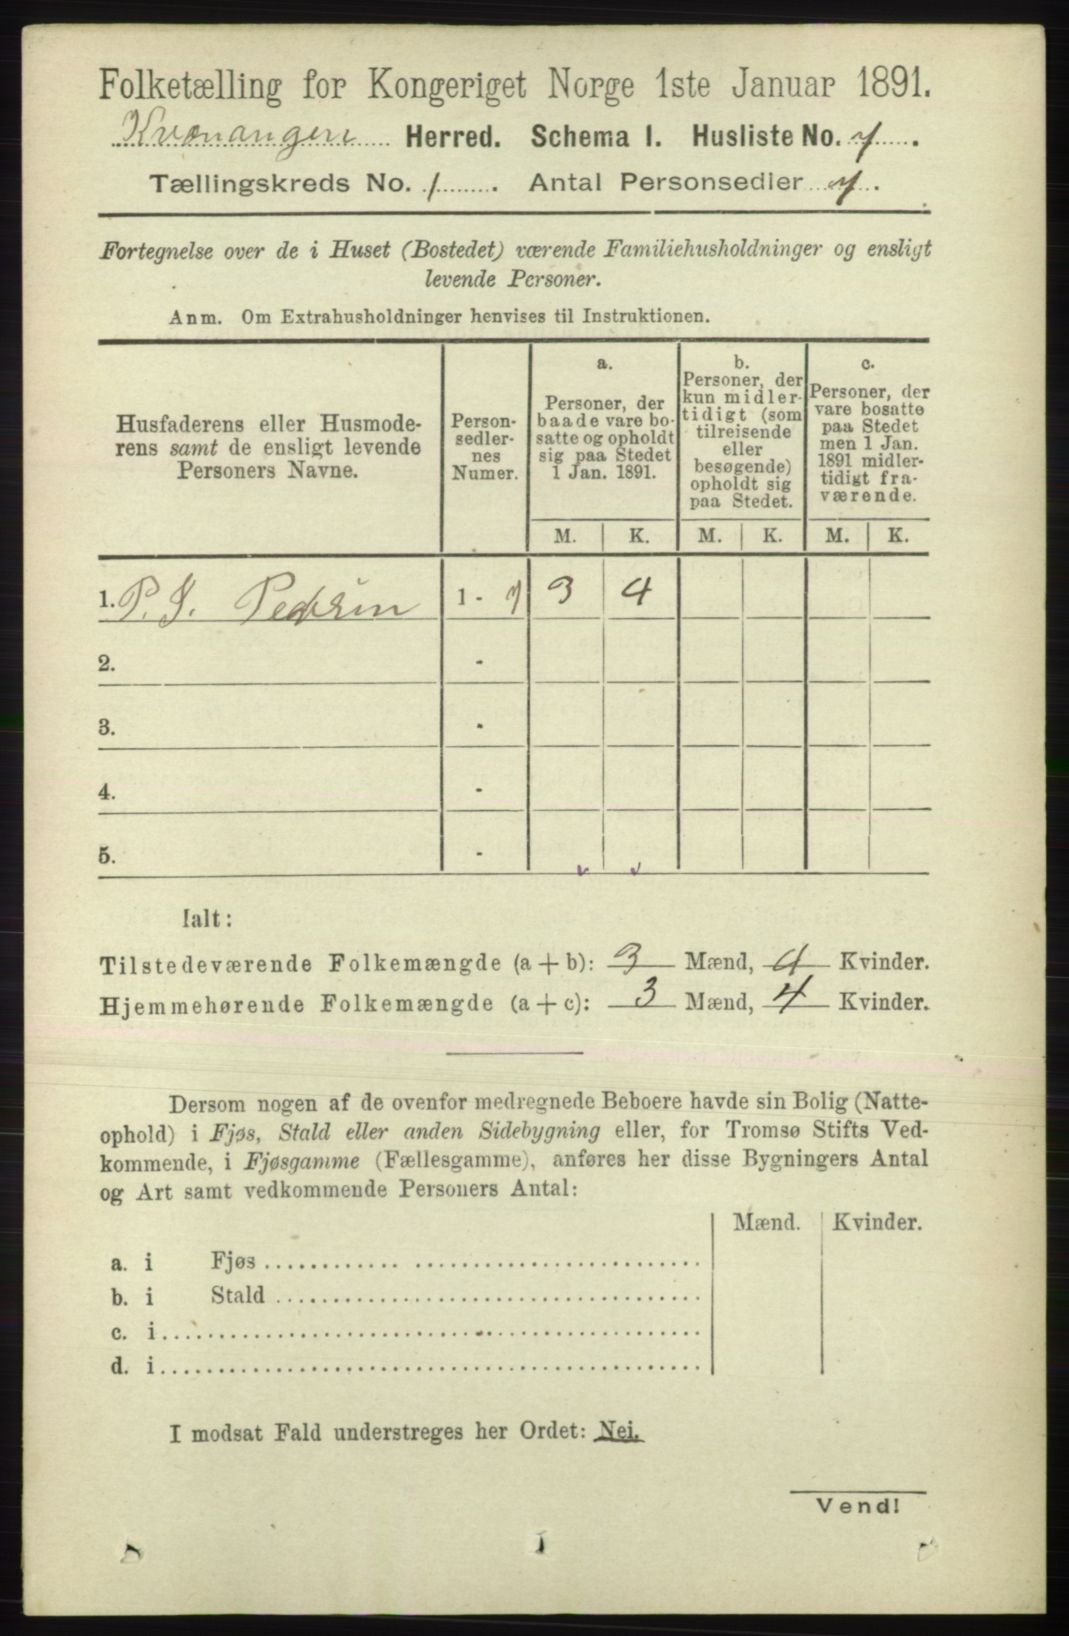 Folketælling for Kongeriget Norge 1ste Januar 1891.
Kvænangen Herred. Schema I. Husliste No. 7.
Tællingskreds No. 1. Antal Personsedler 7.
Fortegnelse over de i Huset (Bostedet) værende Familiehusholdninger og ensligt
levende Personer.
Anm. Om Extrahusholdninger henvises til Instruktionen.
Husfaderens eller Husmode-
rens samt de ensligt levende
Personers Navne.
Person-
sedler-
nes
Numer.
a.
Personer, der
baade vare bo-
satte og opholdt
sig paa Stedet
1 Jan. 1891.
b.
Personer, der
kun midler-
tidigt (som
tilreisende
eller
besøgende)
opholdt sig
paa Stedet.
c.
Personer, der
vare bosatte
paa Stedet
men 1 Jan.
1891 midler-
tidigt fra-
værende.
M. K. M. K. M. K.
1. P. I. Pedersen 1 - 7 3 4
2. -
3. -
4. -
5. -
Ialt:
Tilstedeværende Folkemængde (a+b): 3 Mænd, 4 Kvinder.
Hjemmehørende Folkemængde (a+c): 3 Mænd, 4 Kvinder.
Dersom nogen af de ovenfor medregnede Beboere havde sin Bolig (Natte-
ophold) i Fjøs, Stald eller anden Sidebygning eller, for Tromsø Stifts Ved-
kommende, i Fjøsgamme (Fællesgamme), anføres her disse Bygningers Antal
og Art samt vedkommende Personers Antal:
Mænd. Kvinder.
a. i Fjøs
b. i Stald
c. i
d. i
I modsat Fald understreges her Ordet: Nei.
Vend!